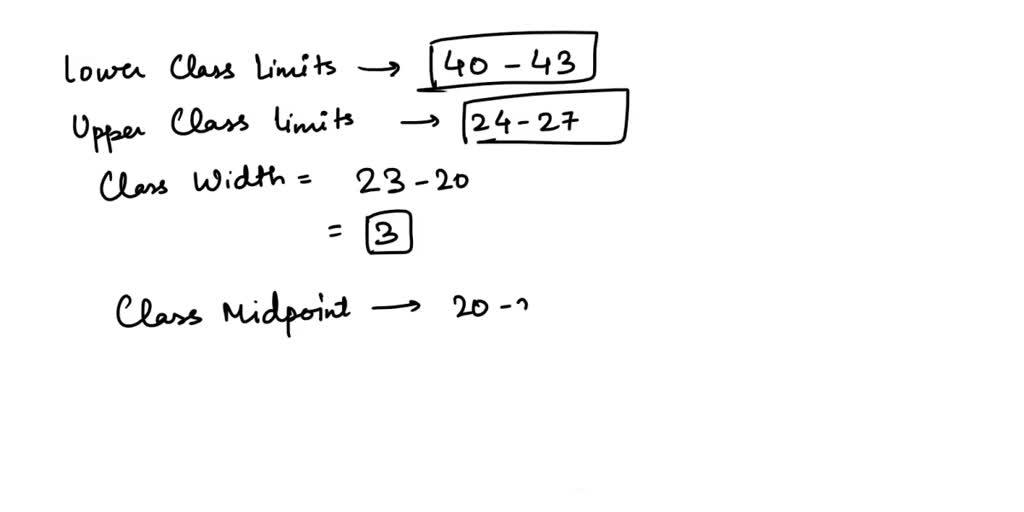 Lower Class Limits → 40 - 43
Upper Class Limits → 24 - 27
Class Width = 23 - 20
= 3
Class Midpoint → 20 -